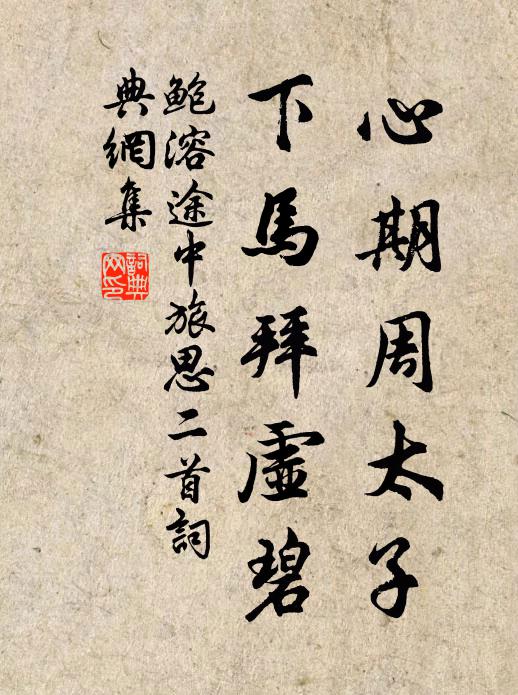 心期周太子
下馬拜虛碧
鮑溶途中旅思二首詞
典網集
詞典網印